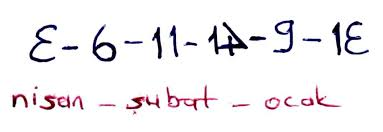 3-6-11-14-9-13
nisan - şubat - ocak